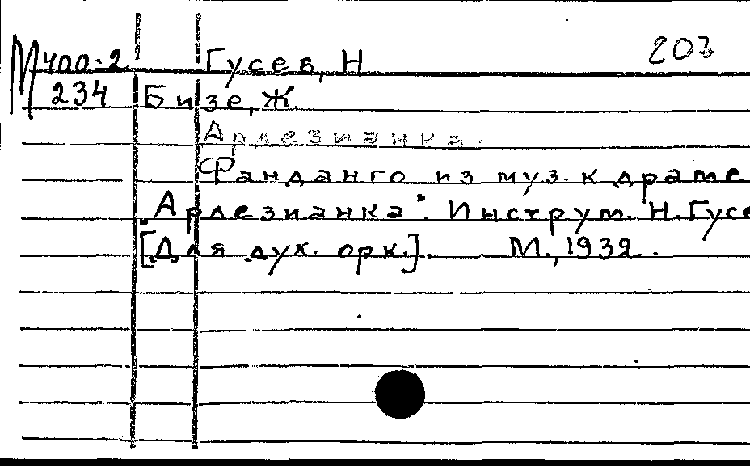 М 400-2 Гусев, Н 203
234 Бизе, Ж.
Арлезианка.
Фанданго из муз. к драме
„Арлезианка". Инструм. Н. Гусе
[Для дух. орк.]. М., 1939.